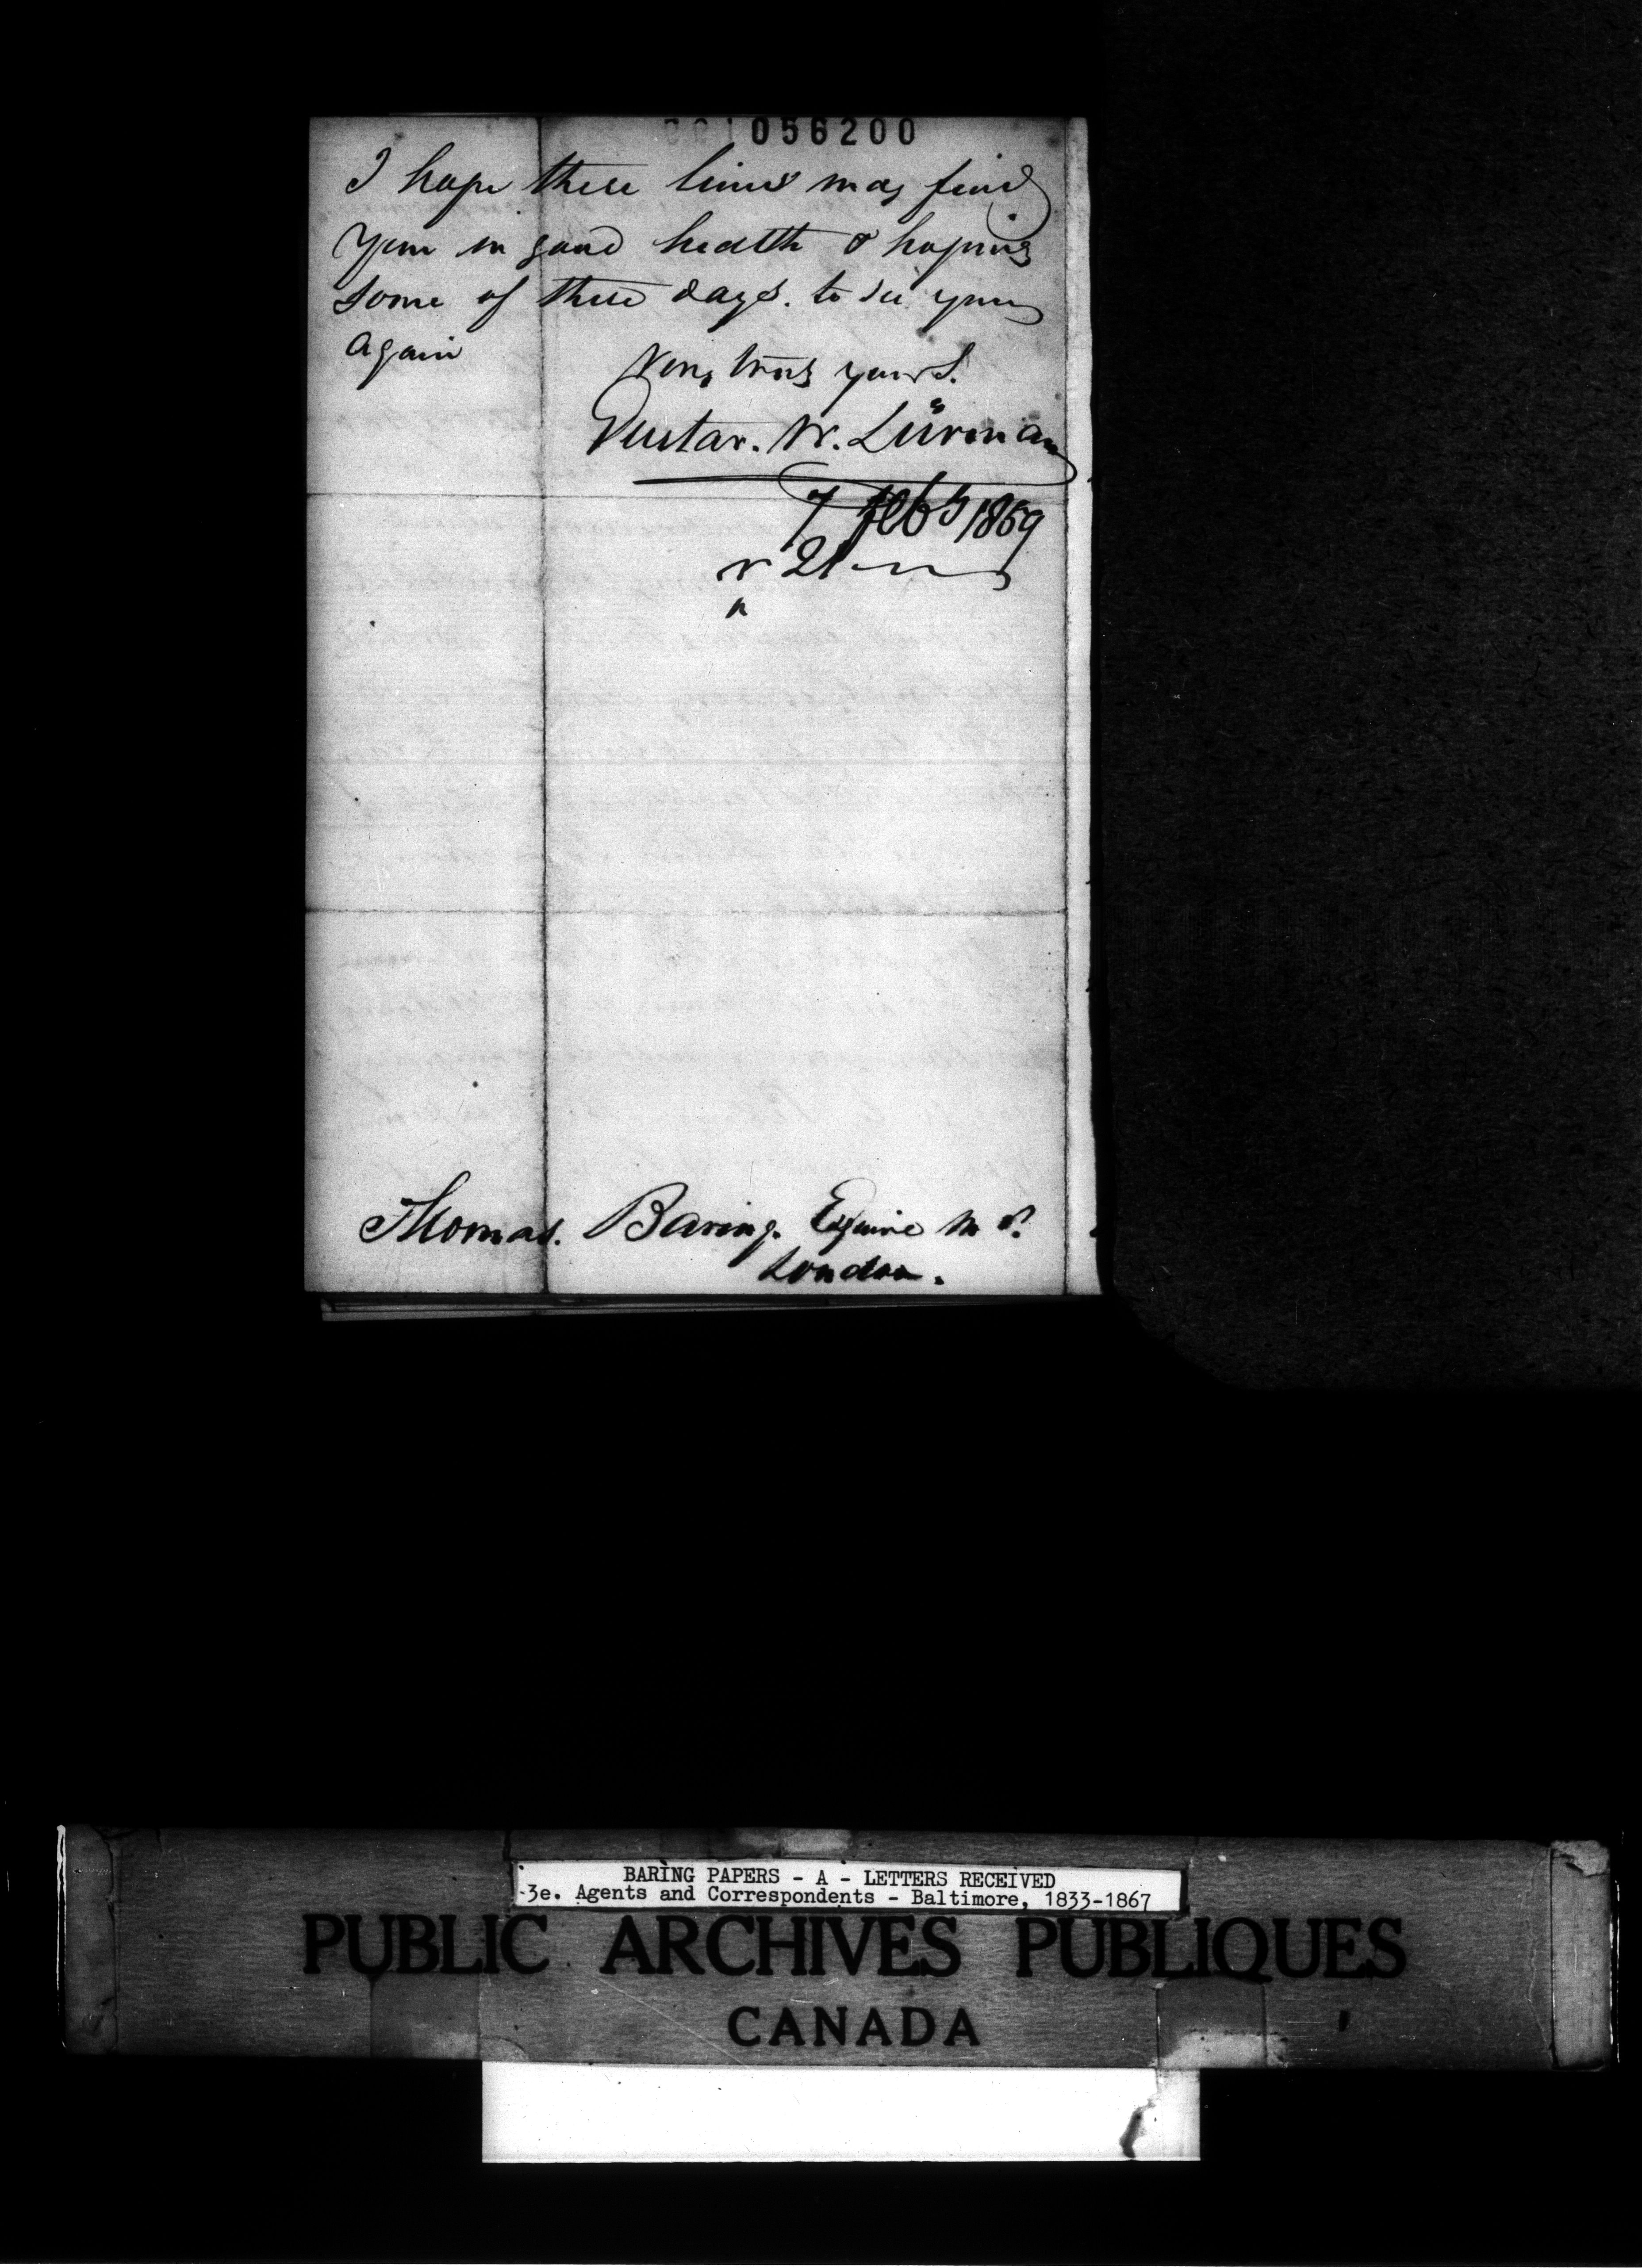 001056200
I hope these lines may find
you in good health & hoping
some of these days. to see you
again
Very truly yours.
Gustav. W. Lürman
7 Feby 1859
r 21
Thomas. Baring. Esquire M P.
London.
BARING PAPERS - A - LETTERS RECEIVED
3e. Agents and Correspondents - Baltimore, 1833-1867
PUBLIC ARCHIVES PUBLIQUES
CANADA